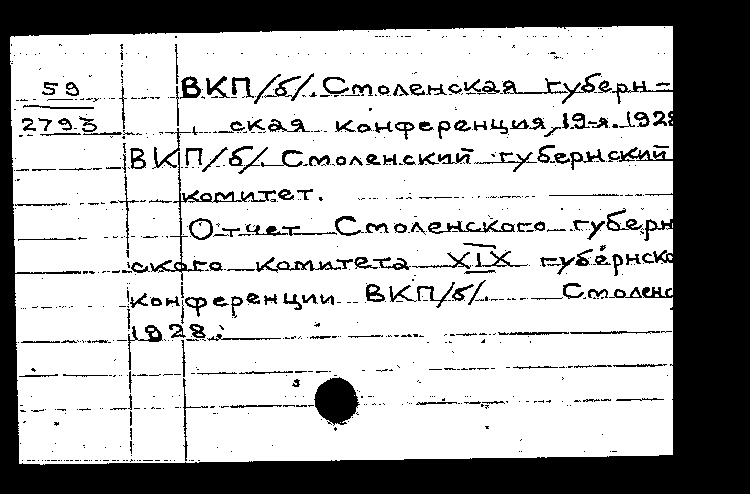 59
2793
ВКП/б/. Смоленская губерн-
ская конференция, 19-я. 1928
ВКП/б/. Смоленский губернский
комитет.
Отчет Смоленского губерн
ского комитета XIX губернско
конференции ВКП/б/. Смоленс
1928.